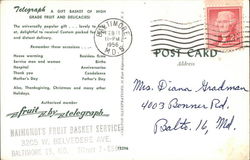 Telegraph A GIFT BASKET OF HIGH
GRADE FRUIT AND DELICACIES
The universally popular gift
or, delightful to receive! Custom packed
and distant delivery.
Remember these occasions
House warming
Service men and women
Hospital
Thank you
Mother's Day
Father's Day
Births
Anniversaries
Condolence
Also: Thanksgiving, Christmas and many other
Holidays.
Authorized member
fruit by telegraph
NAIMONDI'S FRUIT BASKET SERVICE
3205 W. BELVEDERE AVE.
BALTIMORE 15, MD.
BALTIMORE
1956
MD.
POST CARD
Address
Mrs. Diana Gradman
4003 Bonner Rd.
Balto. 16, Md.